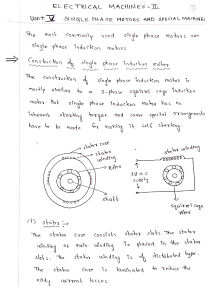 ELECTRICAL MACHINES-II
UNIT V SINGLE PHASE MOTORS AND SPECIAL MACHINES
The most commonly used single phase motors are
single phase induction motors
⇒ Construction of single phase induction motor
The construction of single phase induction motor is
mostly similar to a 3-phase squirrel cage induction
motor. But single phase induction motor has no
inherent starting torque and some special arrangements
have to be made for making it self starting.
stator core
stator winding
Rotor
shaft
1φ a.c supply
stator winding
squirrel cage rotor
(1) stator :-
The stator core consists stator slots. The stator
winding or main winding is placed in the stator
slots. The stator winding is of distributed type.
The stator core is laminated to reduce the
eddy current losses